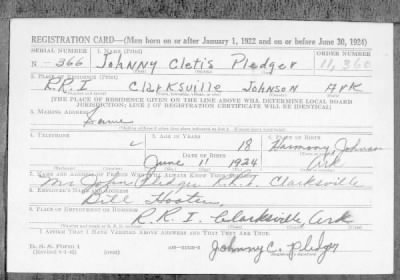 REGISTRATION CARD—(Men born on or after January 1, 1922 and on or before June 30, 1924)
SERIAL NUMBER 1. NAME (Print) ORDER NUMBER
N-366 Johnny Cletis Pledger 11,360
2. PLACE OF RESIDENCE (Print)
R.R.I Clarksville Johnson Ark
[THE PLACE OF RESIDENCE GIVEN ON THE LINE ABOVE WILL DETERMINE LOCAL BOARD
JURISDICTION; LINE 2 OF REGISTRATION CERTIFICATE WILL BE IDENTICAL]
3. MAILING ADDRESS
Same
4. TELEPHONE 5. AGE IN YEARS 6. PLACE OF BIRTH
18 Harmony Johnson
DATE OF BIRTH
June 11 1924 Ark
7. NAME AND ADDRESS OF PERSON WHO WILL ALWAYS KNOW YOUR ADDRESS
Mr John Pledger R.R.I. Clarksville
8. EMPLOYER'S NAME AND ADDRESS
Bill Hooten
9. PLACE OF EMPLOYMENT OR BUSINESS
R.R.I. Clarksville, Ark
I AFFIRM THAT I HAVE VERIFIED ABOVE ANSWERS AND THAT THEY ARE TRUE.
D. S. S. Form 1
Johnny C. Pledger